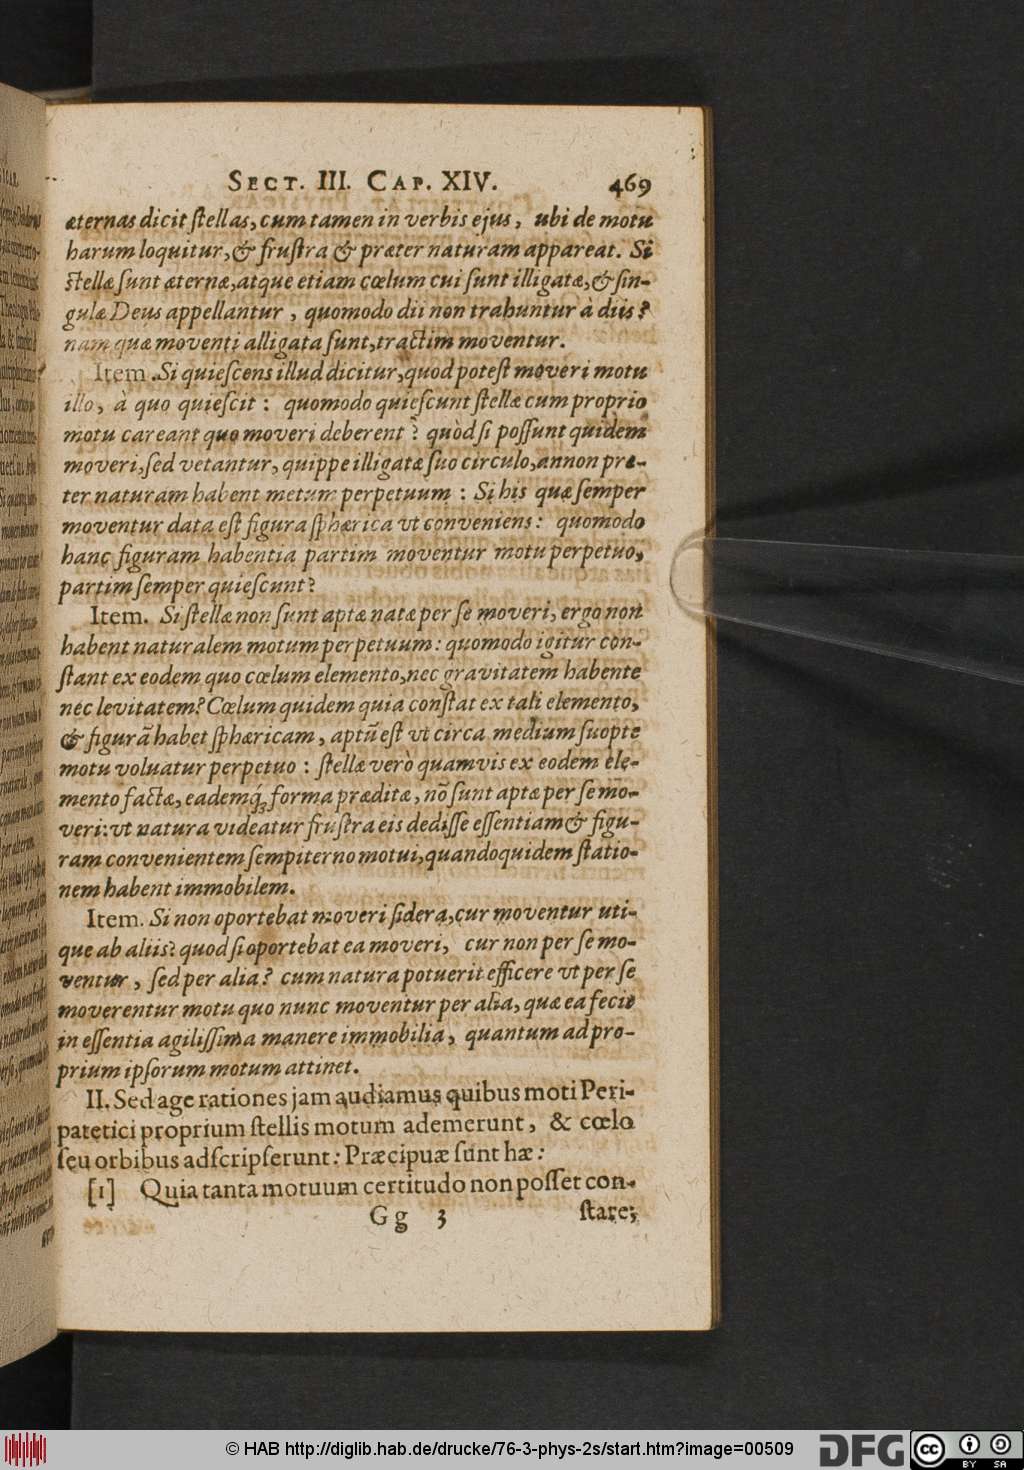 SECT. III. CAP. XIV. 469
æternas dicit ſtellas, cum tamen in verbis ejus, ubi de motu
harum loquitur, & fruſtra & præter naturam appareat. Si
ſtellæ ſunt æternæ, atque etiam cœlum cui ſunt illigatæ, & ſin-
gulæ Deus appellantur, quomodo dii non trahuntur à diis?
nam quæ moventi alligata ſunt, tractim moventur.
Item. Si quieſcens illud dicitur, quod poteſt moveri motu
illo, à quo quieſcit: quomodo quieſcunt ſtellæ cum proprio
motu careant quo moveri deberent? quòd ſi poſſunt quidem
moveri, ſed vetantur, quippe illigatæ ſuo circulo, annon præ-
ter naturam habent metum perpetuum: Si his quæ ſemper
moventur data eſt figura ſphærica vt conveniens: quomodo
hanc figuram habentia partim moventur motu perpetuo,
partim ſemper quieſcunt?
Item. Si ſtellæ non ſunt aptæ natæ per ſe moveri, ergo non
habent naturalem motum perpetuum: quomodo igitur con-
ſtant ex eodem quo cœlum elemento, nec gravitatem habente
nec levitatem? Cœlum quidem quia conſtat ex tali elemento,
& figurā habet ſphæricam, aptū eſt vt circa medium ſuopte
motu voluatur perpetuo: ſtellæ verò quamvis ex eodem ele-
mento factæ, eademq́; forma præditæ, nō ſunt aptæ per ſe mo-
veri: vt natura videatur fruſtra eis dediſſe eſſentiam & figu-
ram convenientem ſempiterno motui, quandoquidem ſtatio-
nem habent immobilem.
Item. Si non oportebat moveri ſidera, cur moventur uti-
que ab aliis? quod ſi oportebat ea moveri, cur non per ſe mo-
ventur, ſed per alia? cum natura potuerit efficere vt per ſe
moverentur motu quo nunc moventur per alia, quæ ea fecit
in eſſentia agiliſſima manere immobilia, quantum ad pro-
prium ipſorum motum attinet.
II. Sed age rationes jam audiamus quibus moti Peri-
patetici proprium ſtellis motum ademerunt, & cœlo
ſeu orbibus adſcripſerunt: Præcipuæ ſunt hæ:
[1] Quia tanta motuum certitudo non poſſet con-
Gg 3 ſtare;
© HAB http://diglib.hab.de/drucke/76-3-phys-2s/start.htm?image=00509
DFG
cc BY SA